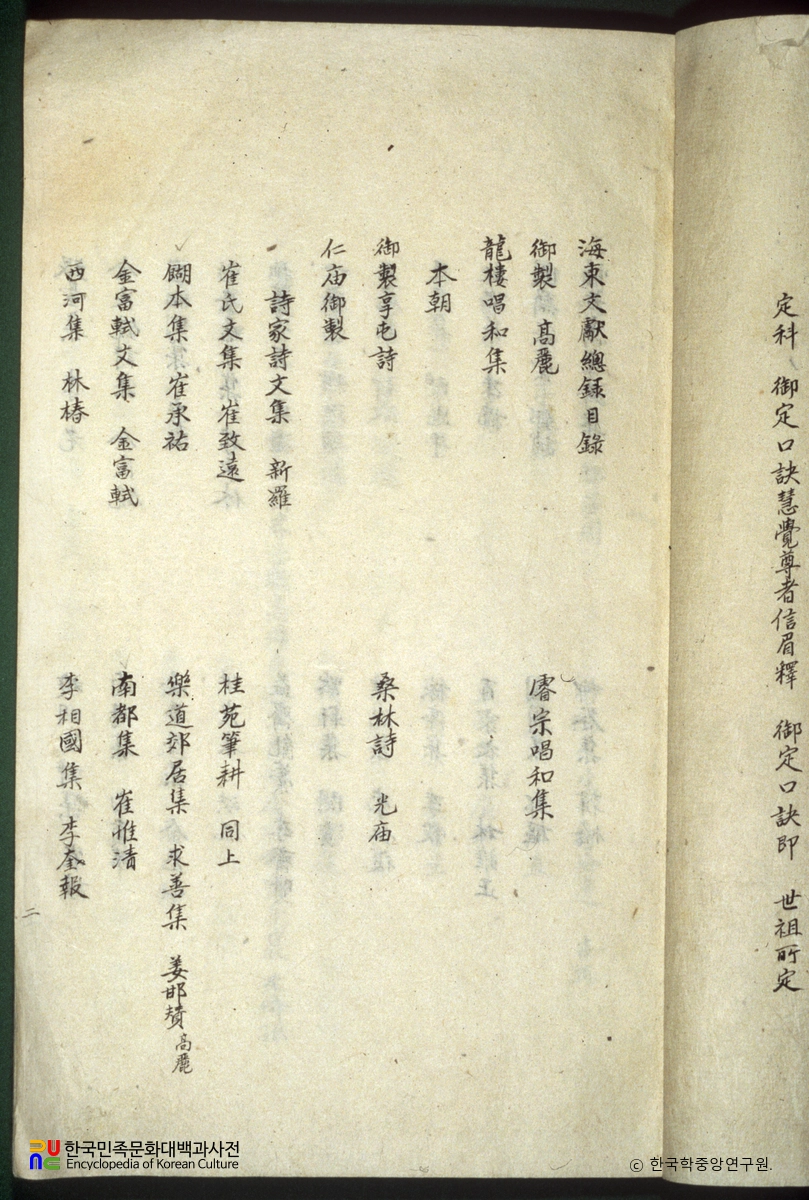 定科 御定口訣慧覺尊者信眉釋 御定口訣即 世祖所定
海東文獻總錄目錄
御製 高麗 睿宗唱和集
龍樓唱和集
本朝
御製享屯詩 桑林詩 光庙
仁庙御製
詩家詩文集 新羅
崔氏文集 崔致遠 桂苑筆耕 同上
餬本集 崔承祐 樂道郊居集 求善集 姜邯賛 高麗
金富軾文集 金富軾 南都集 崔惟清
西河集 林椿 李相國集 李奎報
二
한국민족문화대백과사전
Encyclopedia of Korean Culture
ⓒ 한국학중앙연구원.